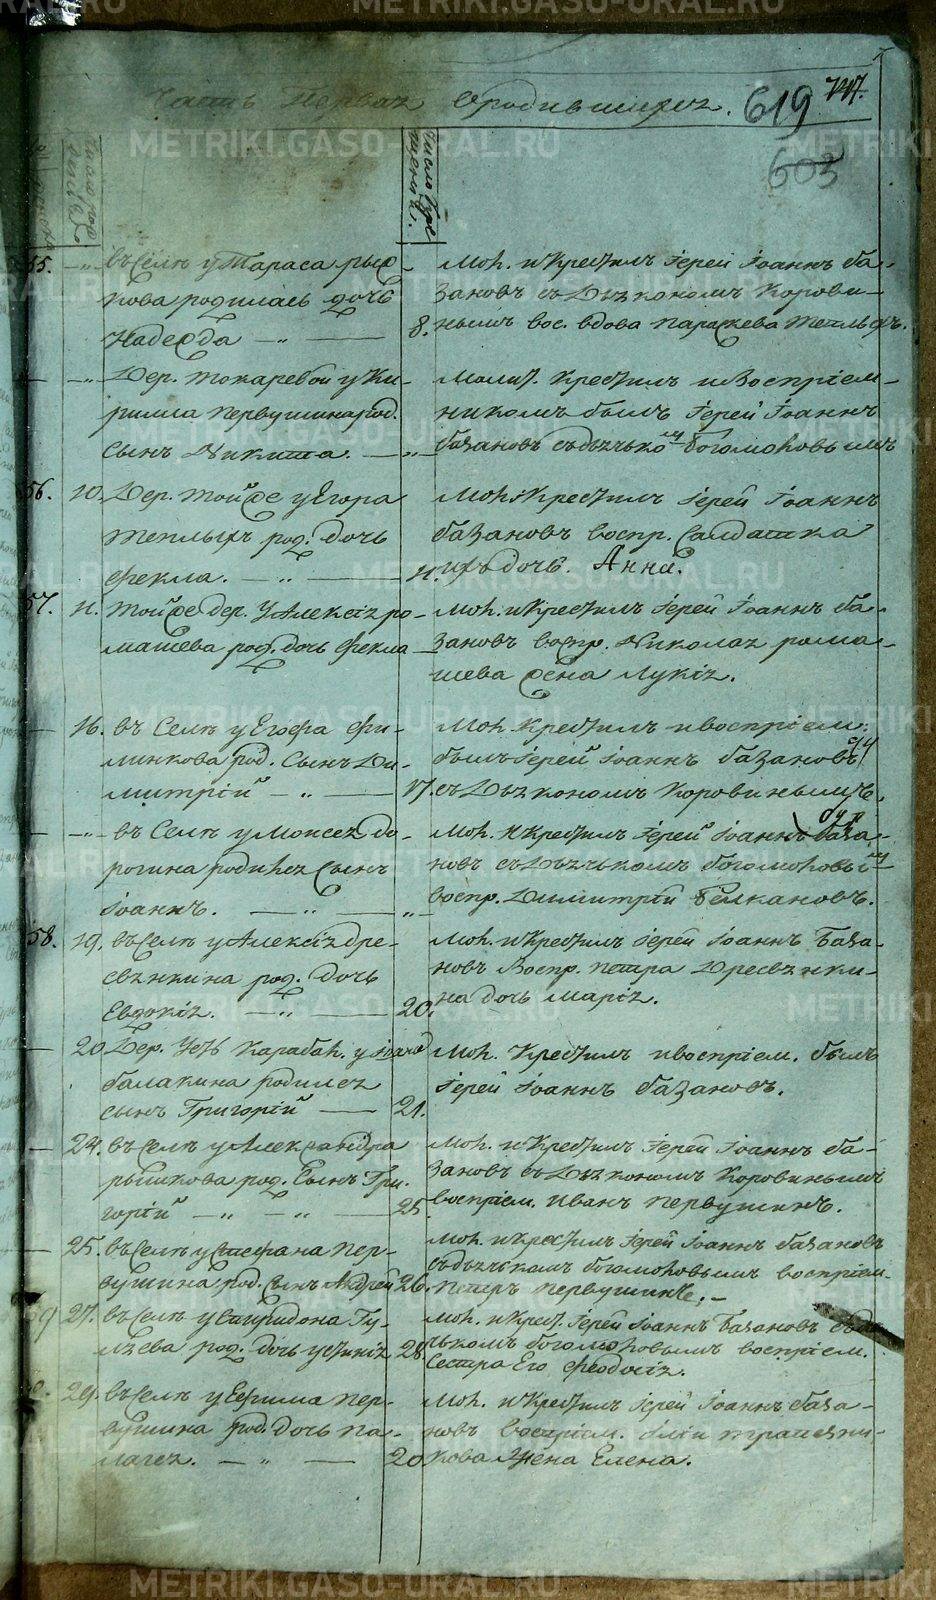 Часть Первая о родившихся. 619 747.
603
Число рождения
Число крещения.
55. -„- въ Селѣ у Тараса рыж-
кова родилась дочь
Надежда -„- 8.
Мол. и Крестилъ Іерей Іоаннъ ба-
зановъ съ Дьякономъ Корови-
нымъ вос. вдова Параскева Теплыхъ.
-„- Дер. Токаревой у Ки-
рилла Первушина род.
сынъ Никита. -„-
Молит. Крестилъ и Воспріем-
никомъ былъ Іерей Іоаннъ
базановъ съ дьячкомъ богомоловымъ
56. 10. Дер. Тойже у Егора
Теплыхъ род. дочь
Фекла. -„- 11.
Мол. и Крестилъ Іерей Іоаннъ
базановъ воспр. Салдатка
ихъ дочь Анна.
57. 11. Тойже дер. У Алексѣя ро-
машева род. дочь Фекла
Мол. и Крестилъ Іерей Іоаннъ ба-
зановъ воспр. Николая рома-
шева жена Лукія.
16. въ Селѣ у Егофа Фи-
линкова род. Сынъ Ди-
митрій -„- 17.
Мол. Крестилъ и воспріем.
былъ Іерей Іоаннъ базановъ
съ Дьякономъ Коровинымъ.
-„- въ Селѣ у Моисея до-
рогина родился Сынъ
Іоаннъ. -„-
Мол. и Крестилъ Іерей Іоаннъ база-
новъ съ Дьячькомъ богомоловым
воспр. Димитрій Белкановъ.
58. 19. въ Селѣ у Алексѣя Дре-
свянкина род. Дочь
Евдокія. -„- 20.
Мол. и Крестилъ Іерей Іоаннъ База-
новъ Воспр. Петра Дресвянки-
на дочь Марія.
20. Дер. Усть Карабол. у
балакина родился
сынъ Григорій 21.
Мол. Крестилъ и воспріем. былъ
Іерей Іоаннъ базановъ.
24. въ Селѣ у Александра
рышкова род. Сынъ Гри-
горій -„- -„- 25
Мол. и Крестилъ Іерей Іоаннъ ба-
зановъ съ Дьякономъ Коровинымъ
воспріем. Иванъ Первушинъ.
25. въ Селѣ у Стефана Пер-
вушина род. сынъ Андрей 26.
Мол. и крестилъ Іерей Іоаннъ базановъ
съ дьячькомъ богомоловымъ воспріем.
Петръ Первушинъ.
59 27. въ Селѣ у Спиридона Гу-
ляева род. дочь Устинія 28.
Мол. и Крест. Іерей Іоаннъ Базановъ съ дья
чькомъ богомоловымъ воспріем.
Сестра Его Феодосія.
29. въ Селѣ у Ефима Пер-
вушина род. дочь Па-
лагея. -„- 20
Мол. и Крестилъ Іерей Іоаннъ база-
новъ воспріем.
кова Жена Елена.